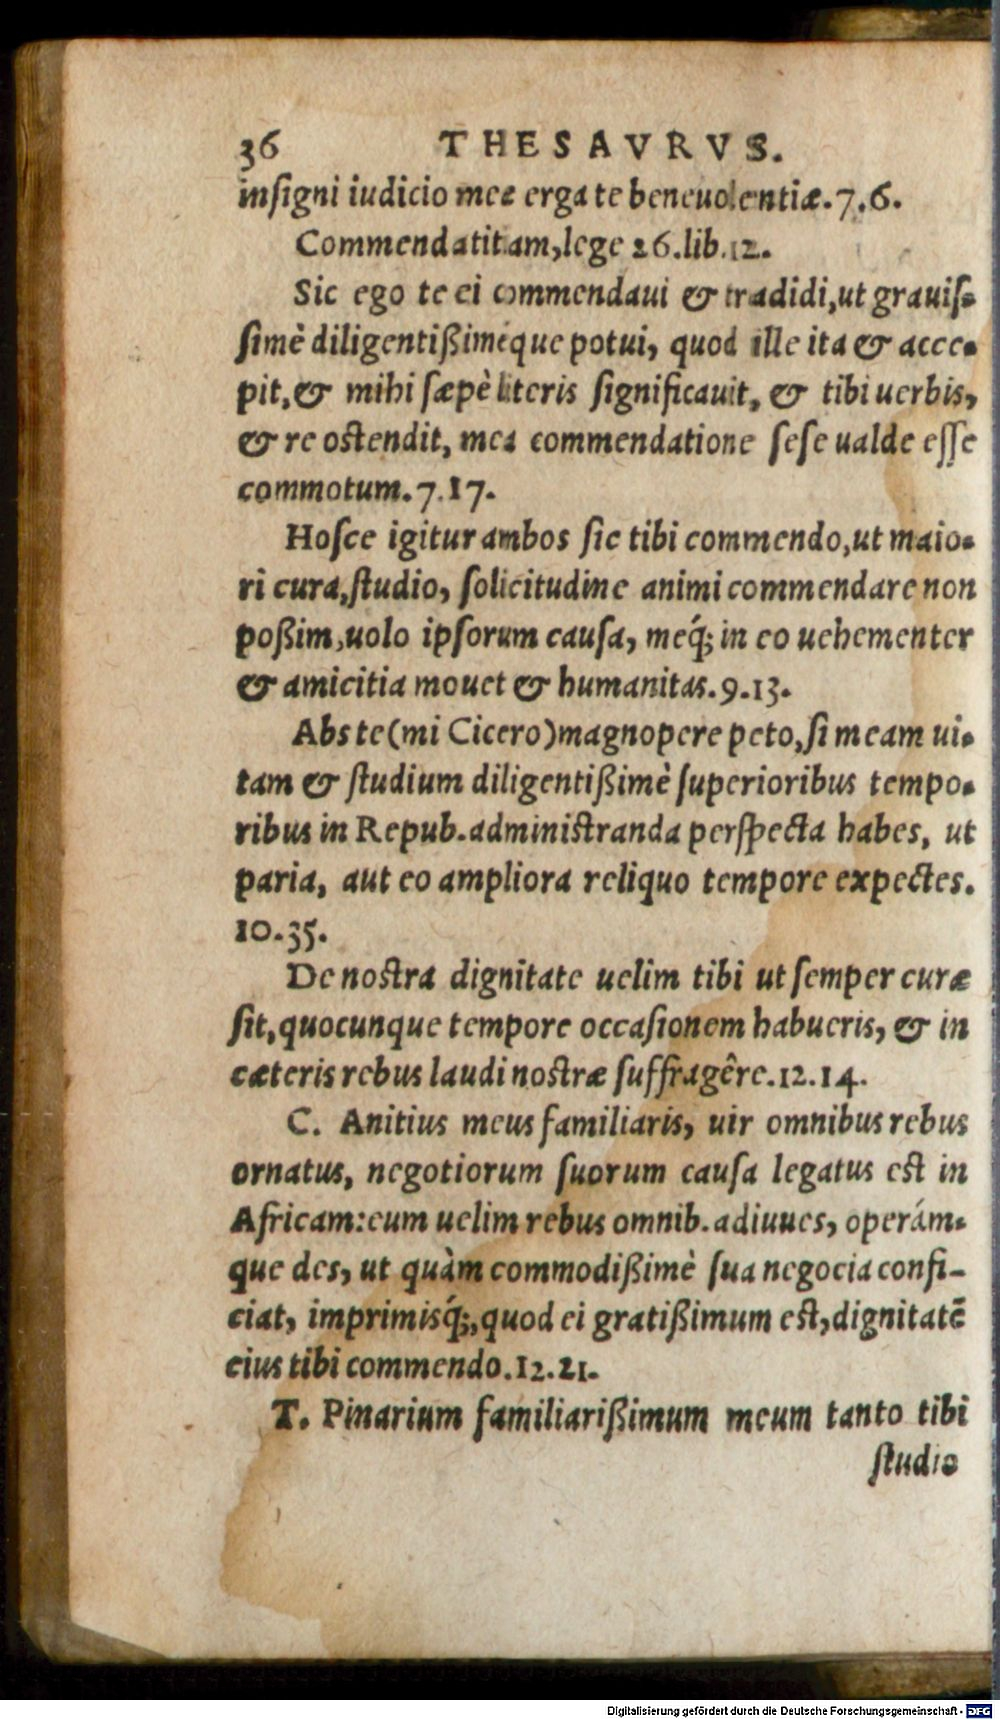 36 THESAVRVS.
inſigni iudicio meæ erga te beneuolentiæ.7.6.
Commendatitiam,lege 26.lib.12.
Sic ego te ei commendaui & tradidi,ut grauiſ-
ſimè diligentißiméque potui, quod ille ita & acce-
pit,& mihi ſæpè literis ſignificauit, & tibi uerbis,
& re oſtendit, mea commendatione ſeſe ualde eſſe
commotum.7.17.
Hoſce igitur ambos ſic tibi commendo,ut maio-
ri cura,ſtudio, ſolicitudine animi commendare non
poßim,uolo ipſorum cauſa, meq́; in eo uehementer
& amicitia mouet & humanitas.9.13.
Abs te(mi Cicero)magnopere peto,ſi meam ui-
tam & ſtudium diligentißimè ſuperioribus tempo-
ribus in Repub.adminiſtranda perſpecta habes, ut
paria, aut eo ampliora reliquo tempore expectes.
10.35.
De noſtra dignitate uelim tibi ut ſemper curæ
ſit,quocunque tempore occaſionem habueris, & in
cæteris rebus laudi noſtræ ſuffragêre.12.14.
C. Anitius meus familiaris, uir omnibus rebus
ornatus, negotiorum ſuorum cauſa legatus eſt in
Africam:eum uelim rebus omnib.adiuues, operám-
que des, ut quàm commodißimè ſua negocia confi-
ciat, imprimisq́;,quod ei gratißimum eſt,dignitatē
eius tibi commendo.12.21.
T. Pinarium familiarißimum meum tanto tibi
ſtudio
Digitalisierung gefördert durch die Deutsche Forschungsgemeinschaft - DFG